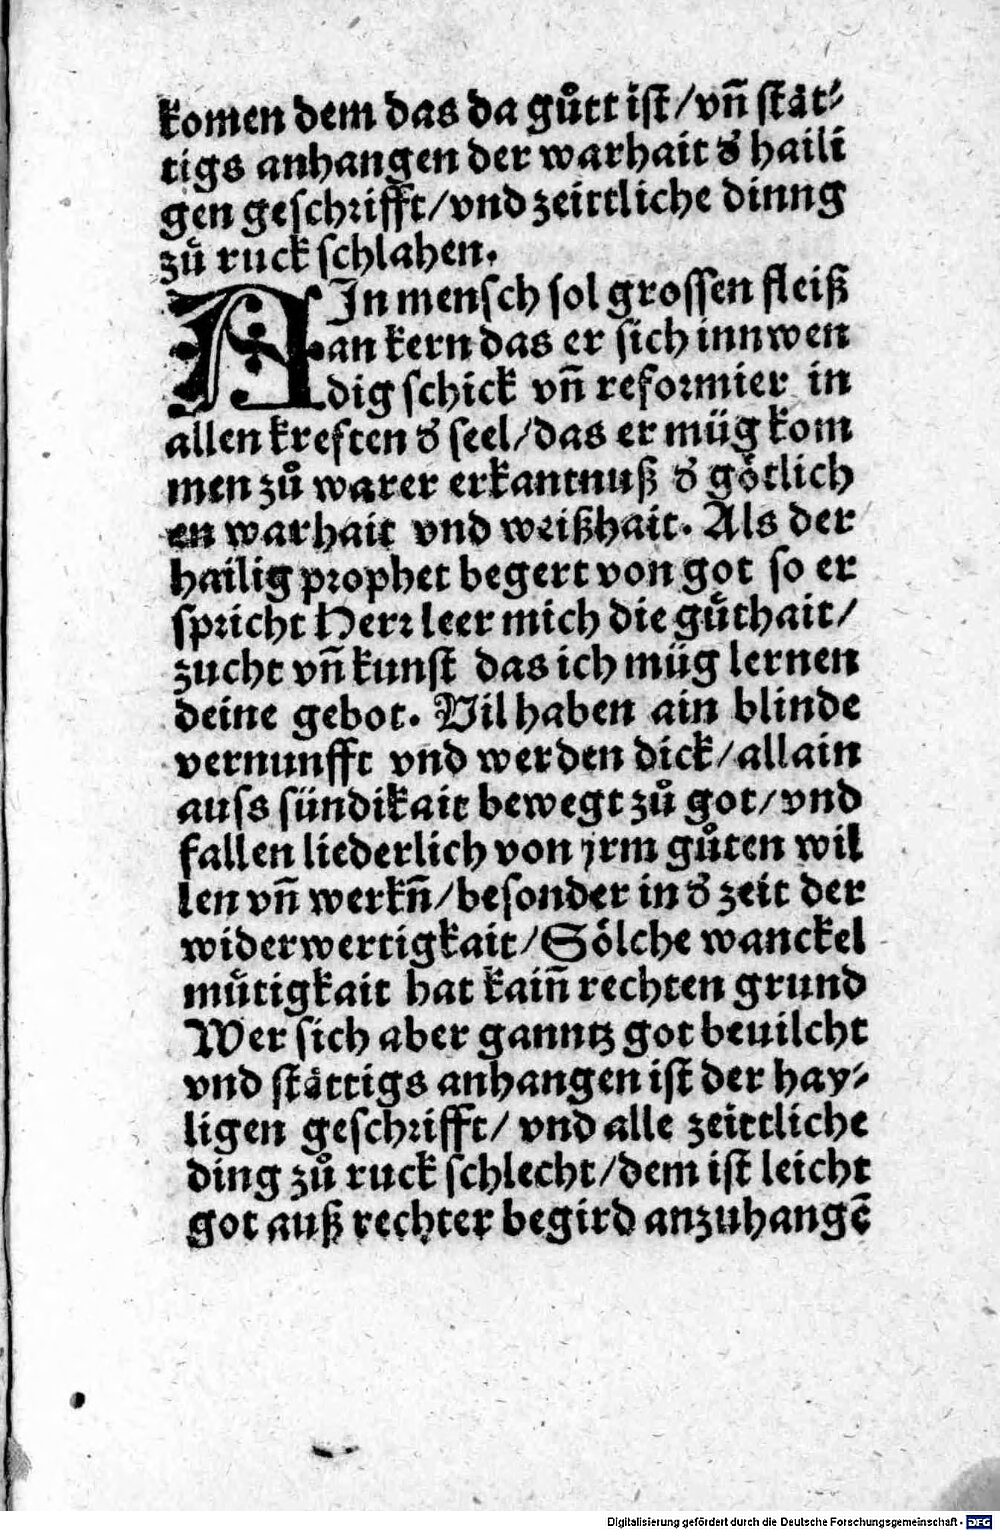 komen dem das da gůtt ist/vn̄ stät⸗
tigs anhangen der warhait d' haili
gen geschrifft/vnd zeittliche dinng
zů ruck schlahen.
AIn mensch sol grossen fleiß
an kern das er sich innwen
dig schick vn̄ reformier in
allen kreften d' seel/das er müg kom
men zů warer erkantnuß d' götlich
en warhait vnd weißhait. Als der
hailig prophet begert von got so er
spricht Herr leer mich die gůthait/
zucht vn̄ kunst das ich müg lernen
deine gebot. Vil haben ain blinde
vernunfft vnd werden dick/allain
auss sündikait bewegt zů got/vnd
fallen liederlich von jrm gůten wil
len vn̄ werkn̄/besonder in d' zeit der
widerwertigkait/Sölche wanckel
mütigkait hat kain̄ rechten grund
Wer sich aber ganntz got beuilcht
vnd stättigs anhangen ist der hay⸗
ligen geschrifft/ vnd alle zeittliche
ding zů ruck schlecht/dem ist leicht
got auß rechter begird anzuhangē
Digitalisierung gefördert durch die Deutsche Forschungsgemeinschaft - DFG